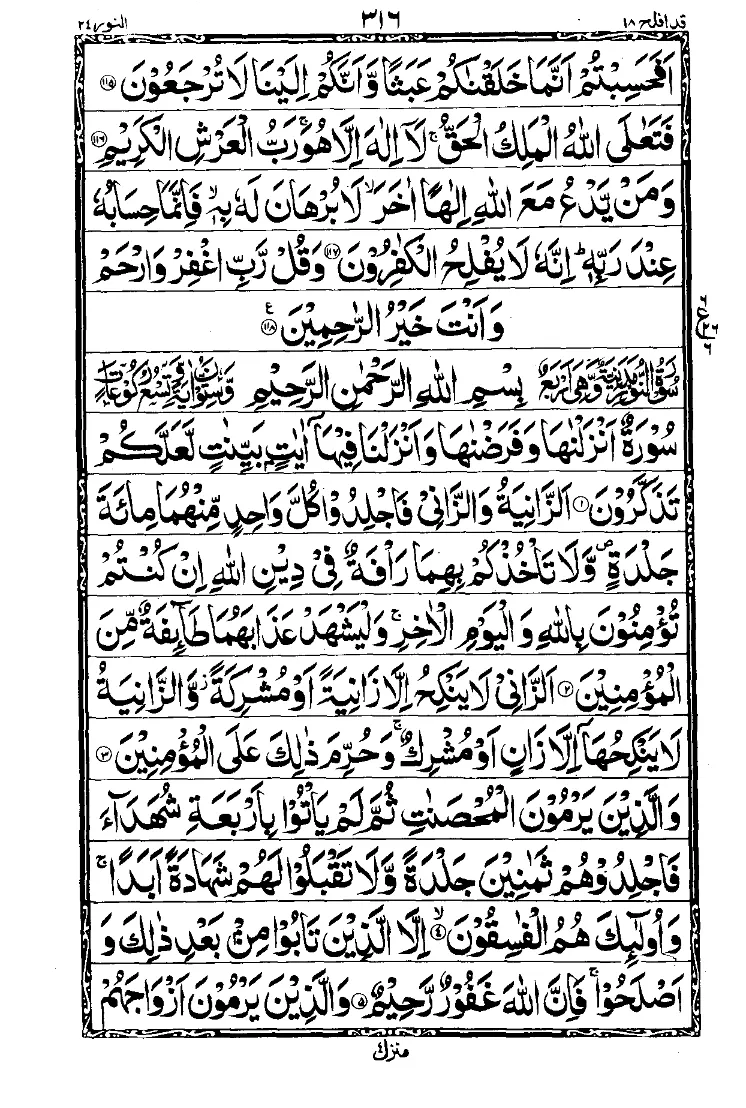 قد افلح ١٨
٣١٦
النور ٢٤
اَفَحَسِبْتُمْ اَنَّمَا خَلَقْنٰكُمْ عَبَثًا وَّاَنَّكُمْ اِلَيْنَا لَا تُرْجَعُوْنَ ﴿١١٥﴾
فَتَعٰلَى اللّٰهُ الْمَلِكُ الْحَقُّ ۚ لَاۤ اِلٰهَ اِلَّا هُوَ ۚ رَبُّ الْعَرْشِ الْكَرِيْمِ ﴿١١٦﴾
وَمَنْ يَّدْعُ مَعَ اللّٰهِ اِلٰهًا اٰخَرَ ۙ لَا بُرْهَانَ لَهٗ بِهٖ ۙ فَاِنَّمَا حِسَابُهٗ
عِنْدَ رَبِّهٖ ؕ اِنَّهٗ لَا يُفْلِحُ الْكٰفِرُوْنَ ﴿١١٧﴾ وَقُلْ رَّبِّ اغْفِرْ وَارْحَمْ
وَاَنْتَ خَيْرُ الرّٰحِمِيْنَ ﴿١١٨﴾ ع
٦ ع ٢٦ ٦
سُوْرَةُ النُّوْرِ مَدَنِيَّةٌ وَّهِيَ اَرْبَعٌ بِسْمِ اللّٰهِ الرَّحْمٰنِ الرَّحِيْمِ وَّسِتُّوْنَ اٰيَةً وَّ تِسْعُ رُكُوْعَاتٍ
سُوْرَةٌ اَنْزَلْنٰهَا وَفَرَضْنٰهَا وَاَنْزَلْنَا فِيْهَاۤ اٰيٰتٍۭ بَيِّنٰتٍ لَّعَلَّكُمْ
تَذَكَّرُوْنَ ﴿١﴾ اَلزَّانِيَةُ وَالزَّانِيْ فَاجْلِدُوْا كُلَّ وَاحِدٍ مِّنْهُمَا مِائَةَ
جَلْدَةٍ ۪ وَّلَا تَاْخُذْكُمْ بِهِمَا رَاْفَةٌ فِيْ دِيْنِ اللّٰهِ اِنْ كُنْتُمْ
تُؤْمِنُوْنَ بِاللّٰهِ وَالْيَوْمِ الْاٰخِرِ ۚ وَلْيَشْهَدْ عَذَابَهُمَا طَآئِفَةٌ مِّنَ
الْمُؤْمِنِيْنَ ﴿٢﴾ اَلزَّانِيْ لَا يَنْكِحُ اِلَّا زَانِيَةً اَوْ مُشْرِكَةً ؗ وَّالزَّانِيَةُ
لَا يَنْكِحُهَاۤ اِلَّا زَانٍ اَوْ مُشْرِكٌ ۚ وَحُرِّمَ ذٰلِكَ عَلَى الْمُؤْمِنِيْنَ ﴿٣﴾
وَالَّذِيْنَ يَرْمُوْنَ الْمُحْصَنٰتِ ثُمَّ لَمْ يَاْتُوْا بِاَرْبَعَةِ شُهَدَآءَ
فَاجْلِدُوْهُمْ ثَمٰنِيْنَ جَلْدَةً وَّلَا تَقْبَلُوْا لَهُمْ شَهَادَةً اَبَدًا ۚ
وَاُولٰٓئِكَ هُمُ الْفٰسِقُوْنَ ﴿٤﴾ ۙ اِلَّا الَّذِيْنَ تَابُوْا مِنْۢ بَعْدِ ذٰلِكَ وَ
اَصْلَحُوْا ۚ فَاِنَّ اللّٰهَ غَفُوْرٌ رَّحِيْمٌ ﴿٥﴾ وَالَّذِيْنَ يَرْمُوْنَ اَزْوَاجَهُمْ
منزل ٤